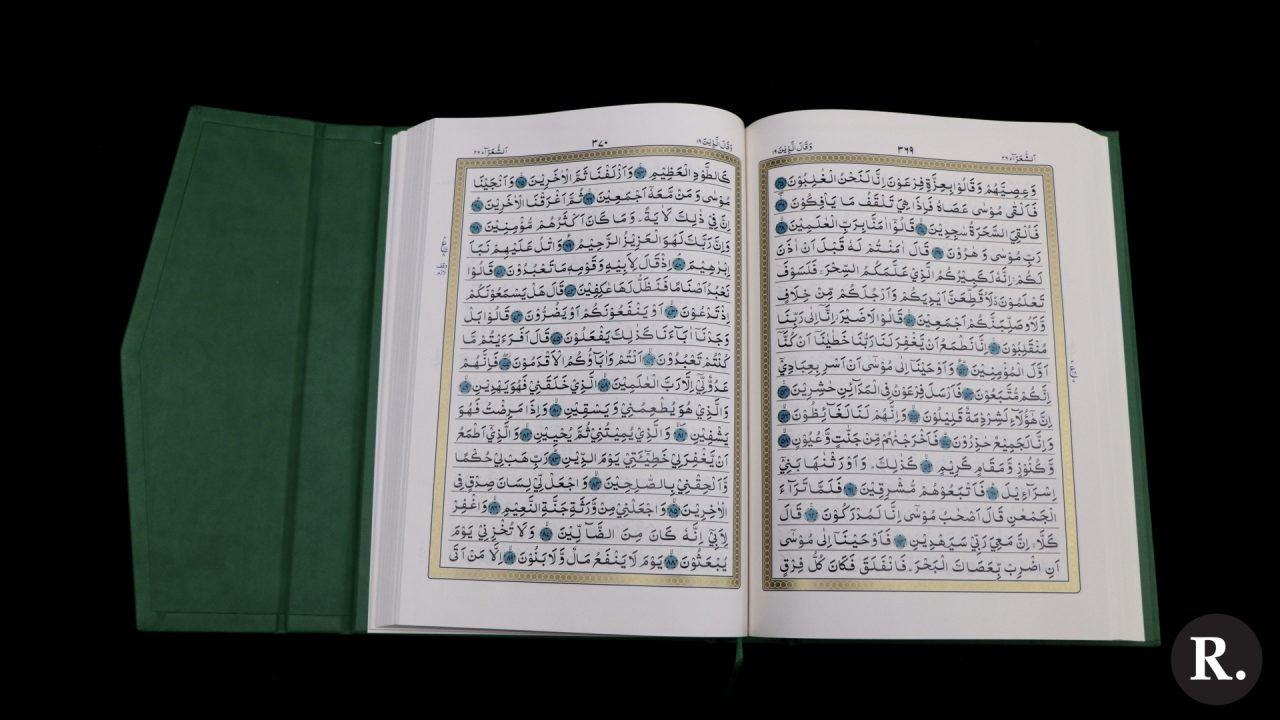 وَقَالَ الَّذِيْنَ ١٩ ٣٦٩ اَلشُّعَرَآء ٢٦
وَعِصِيَّهُمْ وَقَالُوْا بِعِزَّةِ فِرْعَوْنَ اِنَّا لَنَحْنُ الْغٰلِبُوْنَ ٤٤
فَاَلْقٰى مُوْسٰى عَصَاهُ فَاِذَا هِيَ تَلْقَفُ مَا يَاْفِكُوْنَ ٤٥
فَاُلْقِيَ السَّحَرَةُ سٰجِدِيْنَ ٤٦ قَالُوْٓا اٰمَنَّا بِرَبِّ الْعٰلَمِيْنَ ٤٧
رَبِّ مُوْسٰى وَهٰرُوْنَ ٤٨ قَالَ اٰمَنْتُمْ لَهٗ قَبْلَ اَنْ اٰذَنَ
لَكُمْ اِنَّهٗ لَكَبِيْرُكُمُ الَّذِيْ عَلَّمَكُمُ السِّحْرَ فَلَسَوْفَ
تَعْلَمُوْنَ لَاُقَطِّعَنَّ اَيْدِيَكُمْ وَاَرْجُلَكُمْ مِّنْ خِلَافٍ
وَّلَاُوصَلِّبَنَّكُمْ اَجْمَعِيْنَ ٤٩ قَالُوْا لَا ضَيْرَ اِنَّآ اِلٰى رَبِّنَا
مُنْقَلِبُوْنَ ٥٠ اِنَّا نَطْمَعُ اَنْ يَّغْفِرَ لَنَا رَبُّنَا خَطٰيٰنَآ اَنْ كُنَّآ
اَوَّلَ الْمُؤْمِنِيْنَ ٥١ وَاَوْحَيْنَآ اِلٰى مُوْسٰٓى اَنْ اَسْرِ بِعِبَادِيْٓ
اِنَّكُمْ مُّتَّبَعُوْنَ ٥٢ فَاَرْسَلَ فِرْعَوْنُ فِى الْمَدَآئِنِ حٰشِرِيْنَ ٥٣
اِنَّ هٰٓؤُلَآءِ لَشِرْذِمَةٌ قَلِيْلُوْنَ ٥٤ وَاِنَّهُمْ لَنَا لَغَآئِظُوْنَ ٥٥
وَاِنَّا لَجَمِيْعٌ حٰذِرُوْنَ ٥٦ فَاَخْرَجْنٰهُمْ مِّنْ جَنّٰتٍ وَّعُيُوْنٍ ٥٧
وَّكُنُوْزٍ وَّمَقَامٍ كَرِيْمٍ ٥٨ كَذٰلِكَ وَاَوْرَثْنٰهَا بَنِيْٓ
اِسْرَآءِيْلَ ٥٩ فَاَتْبَعُوْهُمْ مُّشْرِقِيْنَ ٦٠ فَلَمَّا تَرَآءَ
الْجَمْعٰنِ قَالَ اَصْحٰبُ مُوْسٰٓى اِنَّا لَمُدْرَكُوْنَ ٦١ قَالَ
كَلَّا اِنَّ مَعِيَ رَبِّيْ سَيَهْدِيْنِ ٦٢ فَاَوْحَيْنَآ اِلٰى مُوْسٰٓى
اَنِ اضْرِبْ بِّعَصَاكَ الْبَحْرَ فَانْفَلَقَ فَكَانَ كُلُّ فِرْقٍ
وَقَالَ الَّذِيْنَ ١٩ ٣٧٠ اَلشُّعَرَآء ٢٦
كَالطَّوْدِ الْعَظِيْمِ ٦٣ وَاَزْلَفْنَا ثَمَّ الْاٰخَرِيْنَ ٦٤ وَاَنْجَيْنَا
مُوْسٰى وَمَنْ مَّعَهٗٓ اَجْمَعِيْنَ ٦٥ ثُمَّ اَغْرَقْنَا الْاٰخَرِيْنَ ٦٦
اِنَّ فِيْ ذٰلِكَ لَاٰيَةً وَمَا كَانَ اَكْثَرُهُمْ مُّؤْمِنِيْنَ ٦٧
وَاِنَّ رَبَّكَ لَهُوَ الْعَزِيْزُ الرَّحِيْمُ ٦٨ وَاتْلُ عَلَيْهِمْ نَبَاَ
اِبْرٰهِيْمَ ٦٩ اِذْ قَالَ لِاَبِيْهِ وَقَوْمِهٖ مَا تَعْبُدُوْنَ ٧٠ قَالُوْا
نَعْبُدُ اَصْنَامًا فَنَظَلُّ لَهَا عٰكِفِيْنَ ٧١ قَالَ هَلْ يَسْمَعُوْنَكُمْ
اِذْ تَدْعُوْنَ ٧٢ اَوْ يَنْفَعُوْنَكُمْ اَوْ يَضُرُّوْنَ ٧٣ قَالُوْا بَلْ
وَجَدْنَآ اٰبَآءَنَا كَذٰلِكَ يَفْعَلُوْنَ ٧٤ قَالَ اَفَرَءَيْتُمْ مَّا
كُنْتُمْ تَعْبُدُوْنَ ٧٥ اَنْتُمْ وَاٰبَآؤُكُمُ الْاَقْدَمُوْنَ ٧٦ فَاِنَّهُمْ
عَدُوٌّ لِّيْٓ اِلَّا رَبَّ الْعٰلَمِيْنَ ٧٧ الَّذِيْ خَلَقَنِيْ فَهُوَ يَهْدِيْنِ ٧٨
وَالَّذِيْ هُوَ يُطْعِمُنِيْ وَيَسْقِيْنِ ٧٩ وَاِذَا مَرِضْتُ فَهُوَ
يَشْفِيْنِ ٨٠ وَالَّذِيْ يُمِيْتُنِيْ ثُمَّ يُحْيِيْنِ ٨١ وَالَّذِيْٓ اَطْمَعُ
اَنْ يَّغْفِرَ لِيْ خَطِيْٓئَتِيْ يَوْمَ الدِّيْنِ ٨٢ رَبِّ هَبْ لِيْ حُكْمًا
وَّاَلْحِقْنِيْ بِالصّٰلِحِيْنَ ٨٣ وَاجْعَلْ لِّيْ لِسَانَ صِدْقٍ فِى
الْاٰخِرِيْنَ ٨٤ وَاجْعَلْنِيْ مِنْ وَّرَثَةِ جَنَّةِ النَّعِيْمِ ٨٥ وَاغْفِرْ
لِاَبِيْٓ اِنَّهٗ كَانَ مِنَ الضَّآلِّيْنَ ٨٦ وَلَا تُخْزِنِيْ يَوْمَ
يُبْعَثُوْنَ ٨٧ يَوْمَ لَا يَنْفَعُ مَالٌ وَّلَا بَنُوْنَ ٨٨ اِلَّا مَنْ اَتَى
R.